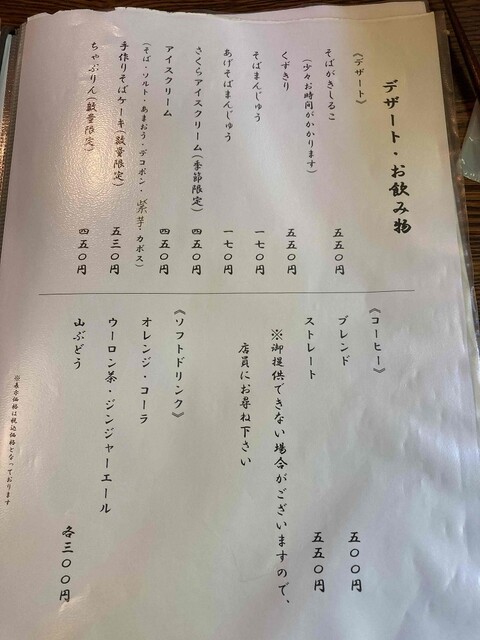 デザート・お飲み物
《デザート》
そばがきしるこ 五五〇円
(少々お時間がかかります)
くずきり 五五〇円
そばまんじゅう 一七〇円
あげそばまんじゅう 一七〇円
さくらアイスクリーム(季節限定) 四五〇円
アイスクリーム 四五〇円
(そば・ソルト・あまおう・デコポン・紫芋・カボス)
手作りそばケーキ(数量限定) 五三〇円
ちゃぷりん(数量限定) 四五〇円
《コーヒー》
ブレンド 五〇〇円
ストレート 五五〇円
※御提供できない場合がございますので、
店員にお尋ね下さい
《ソフトドリンク》
オレンジ・コーラ
ウーロン茶・ジンジャーエール
山ぶどう 各三〇〇円
※表示価格は税込価格となっております